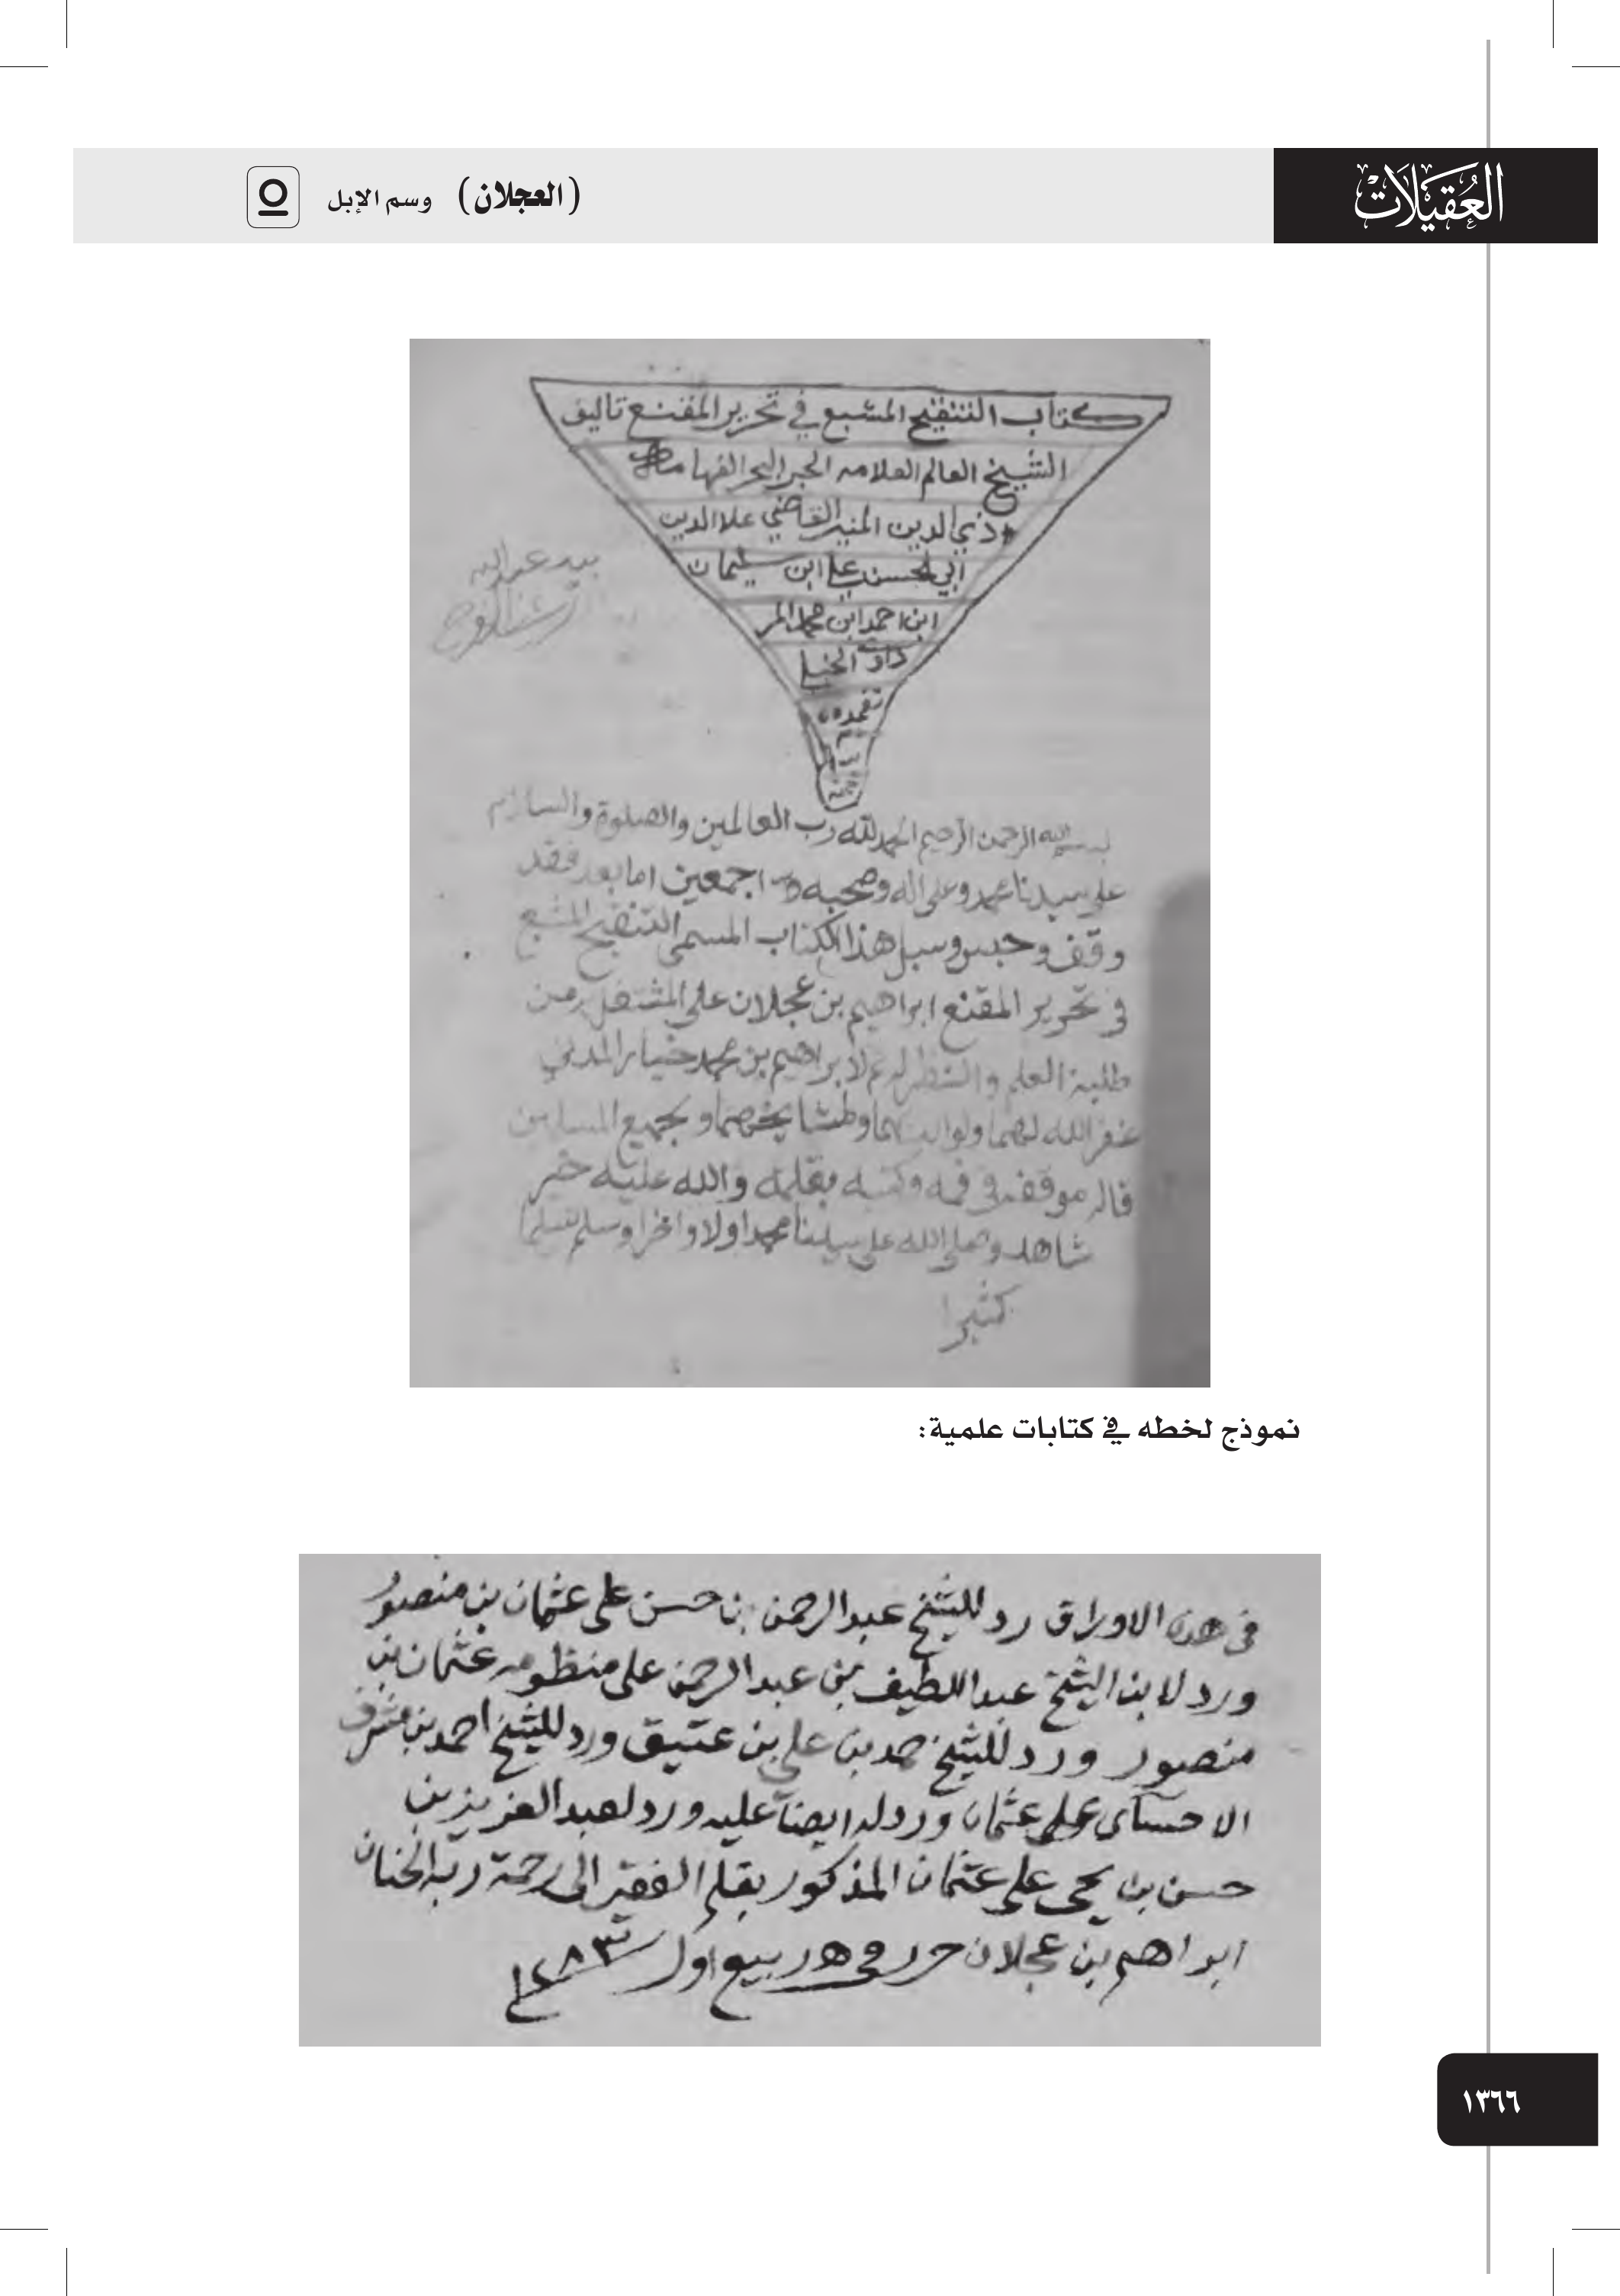 العُقيلات
(العجلان) وسم الإبل
كتاب التنقيح المشبع في تحرير المقنع تاليف
الشيخ العالم العلامه الحبر البحر الفهامه
ذي الدين المنير القاضي علا الدين
ابي الحسن علي ابن سليمان
ابن احمد ابن محمد المر
داوي الحنبلي
تغمده
بيد عبدالله
بسم الله الرحمن الرحيم الحمد لله رب العالمين والصلوة والسلام
على سيدنا محمد وعلى اله وصحبه اجمعين اما بعد فقد
وقف وحبس وسبل هذا الكتاب المسمى التنقيح المشبع
في تحرير المقنع ابراهيم بن عجلان على المشتغل من
طلبة العلم والنظر لابراهيم بن محمد المدني
غفر الله لهما ولوالديهما ولمشايخهما ولجميع المسلمين
قاله موقفه في فمه وكتبه بقلمه والله عليه خير
شاهد وصلى الله على سيدنا محمد اولا واخرا وسلم تسليما
كثيرا
نموذج لخطه في كتابات علمية:
في هذه الاوراق رد للشيخ عبدالرحمن بن حسن على عثمان بن منصور
ورد لابنه الشيخ عبداللطيف بن عبدالرحمن على منظومه عثمان بن
منصور ورد للشيخ حمد بن علي بن عتيق ورد للشيخ احمد بن مشرف
الاحسائي على عثمان ورد له ايضاً عليه ورد لعبد العزيز بن
حسن بن يحيى على عثمان المذكور بقلم الفقير الى رحمة ربه
ابراهيم بن عجلان حرر في ٥ ربيع اول ١٢٨٣
١٣٦٦